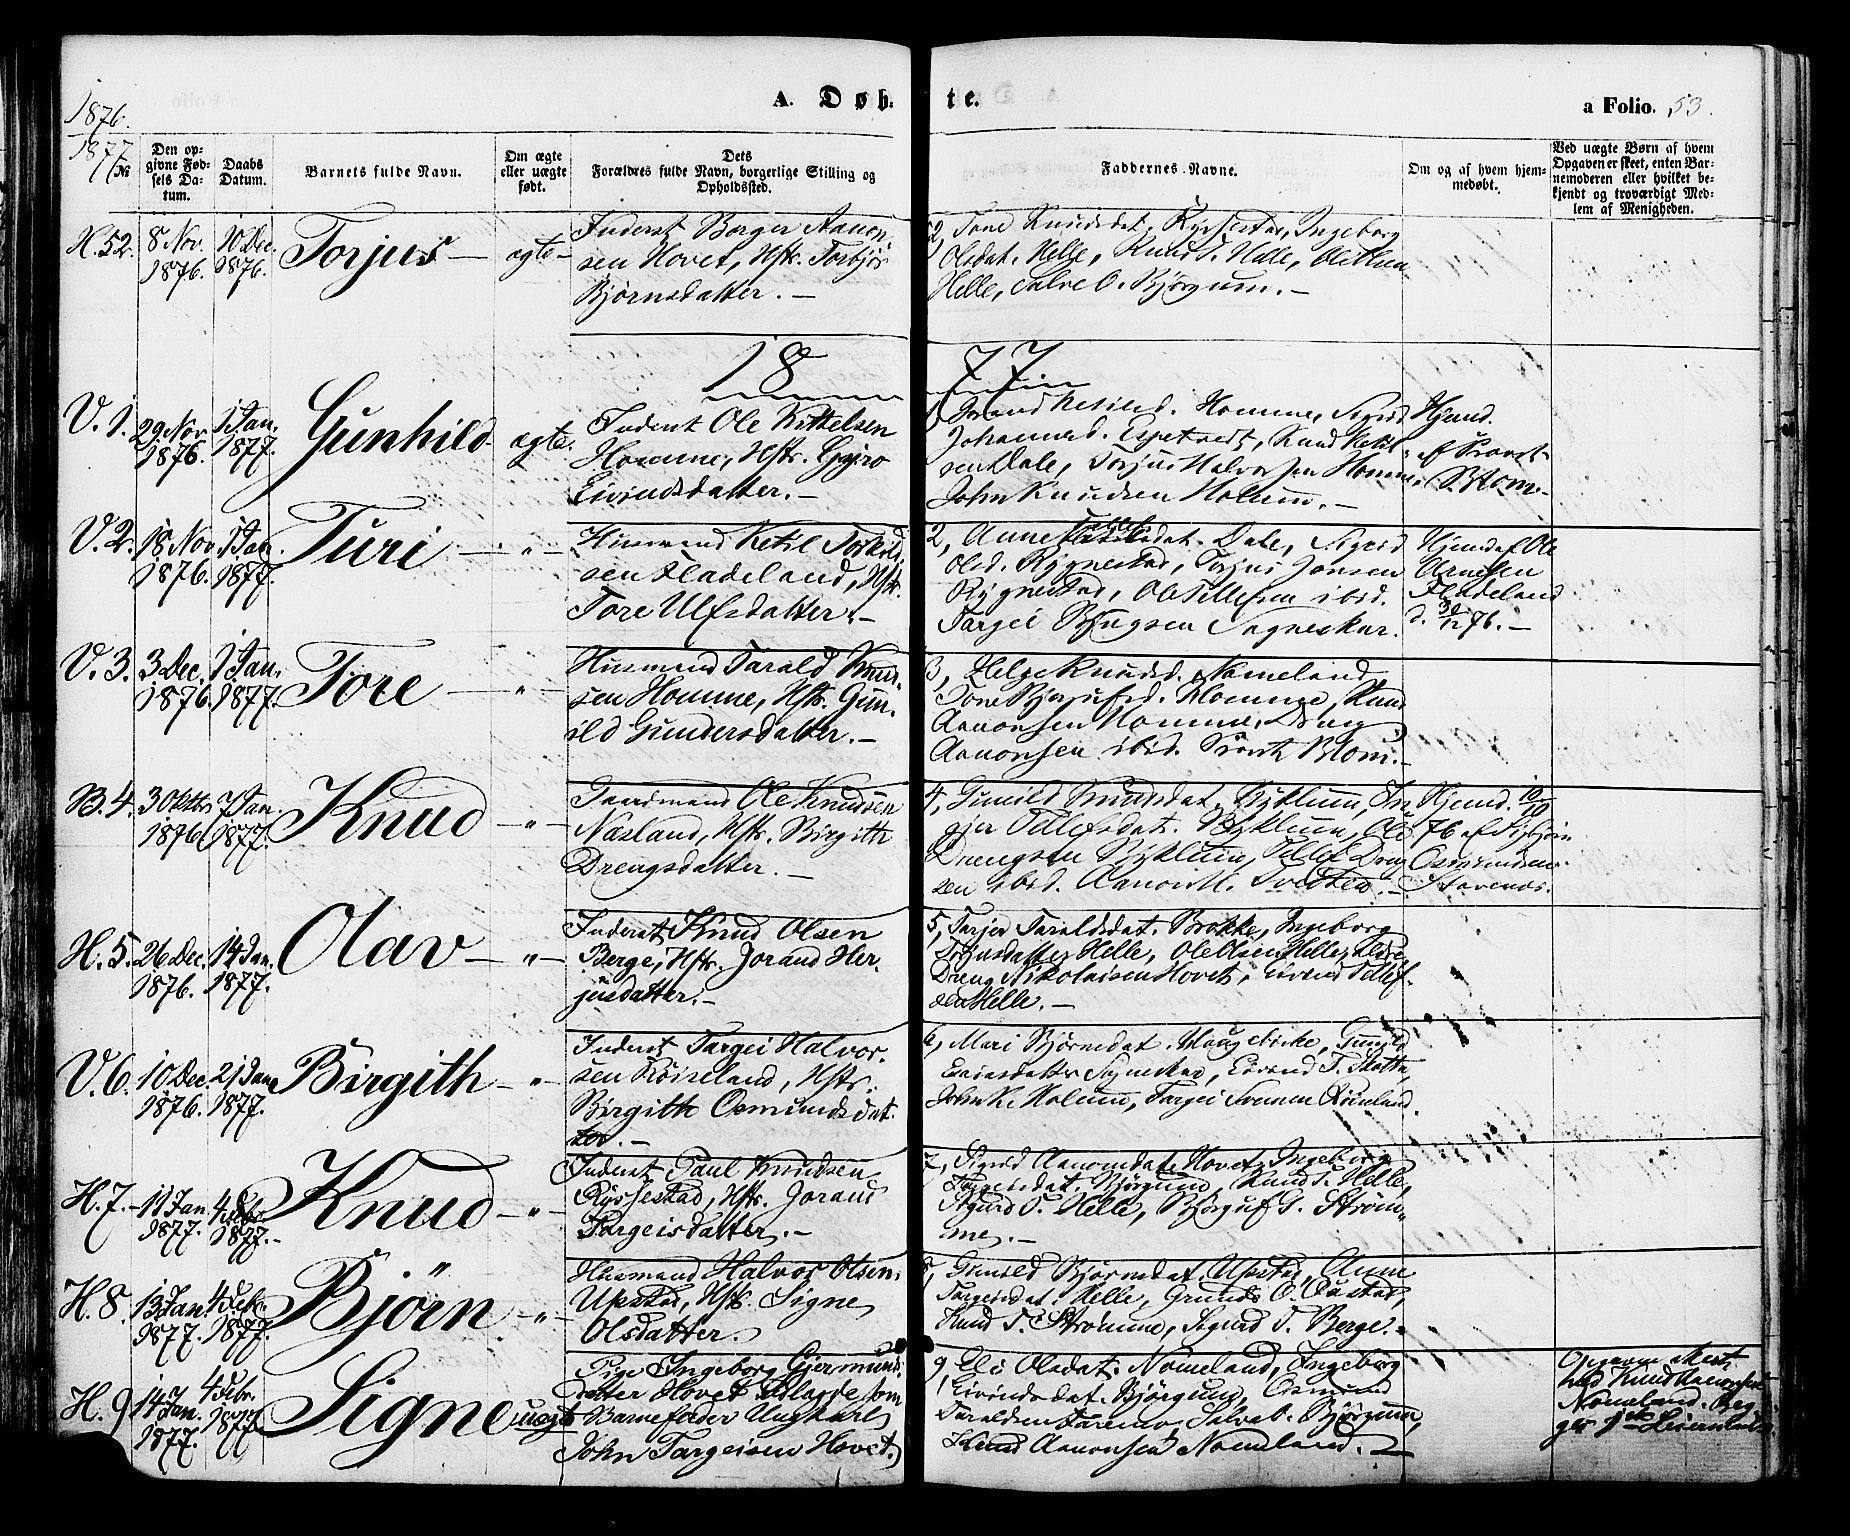 1876.
1877
A. Døb-
te.
a Folio. 53.
№
Den op-
givne Fød-
sels Da-
tum.
Daabs
Datum.
Barnets fulde Navn.
Om ægte
eller uægte
født.
Dets
Forældres fulde Navn, borgerlige Stilling og
Opholdssted.
Faddernes Navne.
Om og af hvem hjem-
medøbt.
Ved uægte Børn af hvem
Opgaven er skeet, enten Bar-
nemoderen eller hvilket be-
kjendt og troværdigt Med-
lem af Menigheden.
H. 52.
8 Nov.
1876.
10 Dec.
1876.
Torjus
ægte
Inderst Borger Aanon
sen Hovet, Hstr. Torbjør
Bjørnsdatter.
Tone Knudsdat. Rysstad, Ingeborg
Olsdat. Helle, Knud Helle, Ole
Helle, Salve O. Bjørgum.
1877
V. 1.
29 Nov.
1876.
1 Jan.
1877.
Gunhild
ægte
Inderst Ole Kittelsen
Homme, Hstr. Gyro
Eivindsdatter.
1, Homme, Sigrid
Johannesd. Espetvedt, Knud Ketil-
sen Dale, Torjus Halvorsen Homme,
John Knudsen Holum.
Hjemd.
af Provst
Blom.
V. 2.
18 Nov.
1876.
1 Jan.
1877.
Turi
"
Husmand Ketil Torkild
sen Fladeland, Hstr.
Tore Ulfsdatter.
2, Anne Dale, Sigrid
Olsd. Rygnestad, Torjus Jonsen
Rygnestad, Ole Tellefsen ibid.
Targei Bjugsen Sagneskar.
Hjemd. af Ole
Arnesen
Fladeland
d. 30/12 76.
V. 3.
3 Dec.
1876.
1 Jan.
1877.
Tore
"
Husmand Tarald Knud-
sen Homme, Hstr. Gun-
ild Gundersdatter.
3, Helge Knudsd. Nomeland,
Tone Bjørgufsd. Homme, Knud
Aanonsen Homme, Dreng
Aanonsen ibid. Provst Blom.
B. 4.
3 Oktbr
1876
7 Jan.
1877.
Knud
"
Gaardmand Ole Knudsen
Næsland, Hstr. Birgith
Drengsdatter.
4, Gunild Knudsdat. Byklum, In
gjer Tellefsdat. Byklum, Ole
Drengsen Byklum, Tellef Dreng
sen ibid. Aanon Tveiten.
Hjemd. 10/10
76 af Gjsbjørn
Osmundsen
Stavenæs.
H. 5.
26 Dec.
1876.
14 Jan.
1877.
Olav
"
Inderst Knud Olsen
Berge, Hstr. Jorand Her-
jusdatter.
5, Tarjer Taraldsdat. Brokke, Ingeborg
Helle, Ole Olsen Helle,
Dreng Nikolaisen Hovet, Eivind Tellef-
sen Helle.
V. 6.
10 Dec.
1876.
21 Jan.
1877.
Birgith
"
Inderst Targei Halvor-
sen Røiseland, Hstr.
Birgith Osmundsdat-
ter.
6, Mari Bjørnsdat. Haugebrike, Gunild
Eivind T. Flatta,
John K. Holum, Targei Svensen
H. 7.
11 Jan.
1877.
4 Febr.
1877.
Knud
"
Inderst Paul Knudsen
Rysjestad, Hstr. Jorand
Targeisdatter.
7, Sigrid Aanonsdat. Hovet, Ingeborg
Targeisdat. Bjørgum, Knud Helle,
Sigurd T. Helle, Bjørguf G. Strøm-
me.
H. 8.
13 Jan.
1877.
4 Febr.
1877.
Bjørn
"
Husmand Halvor Olsen
Upstad, Hstr. Signe
Olsdatter.
8, Gunild Bjørnsdat. Upstad, Anne
Targeisdat. Helle,
Knud T. Strømme, Sigurd T. Berge.
H. 9
14 Jan.
1877.
4 Febr.
1877
Signe
uægte
Pige Ingeborg Gjermunds-
datter Hovet Udlagde som
Barnefader Ungkarl
John Targeisen Hovet.
9, Eli Olsdat. Nomeland, Ingeborg
Eivindsdat. Bjørgum, Osmund
Taraldsen Salve O. Bjørgum,
Knud Aanonsen Nomeland.
Opgaven skeet
ved Knud Aanonsen
Nomeland. Beg-
ges 1ste Leiermaal.